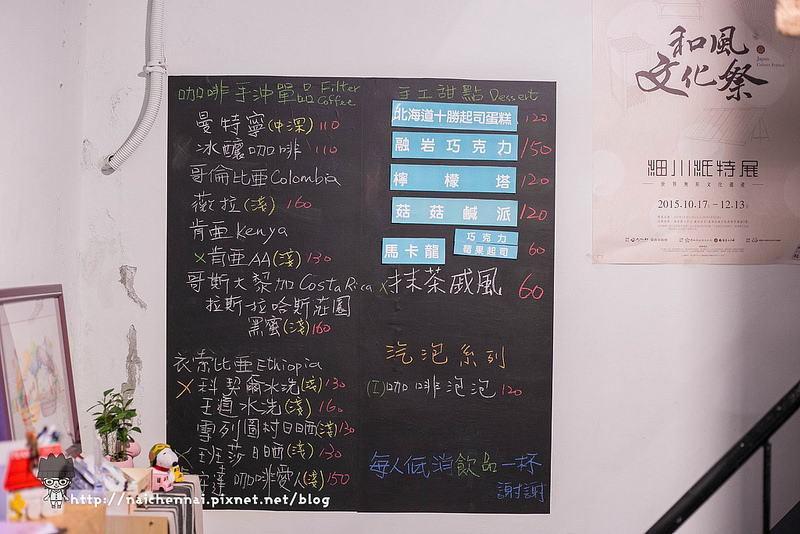 咖啡手沖單品 Filter Coffee
曼特寧(中深) 110
冰釀咖啡 110
哥倫比亞 Colombia
薇拉(淺) 160
肯亞 Kenya
×肯亞AA(淺) 130
哥斯大黎加 Costa Rica
拉斯拉哈斯莊園
黑蜜(淺) 160
衣索比亞 Ethiopia
×科契爾水洗(淺) 130
王道水洗(淺) 160
雪列圖村日晒(淺) 130
日晒(淺) 130
咖啡愛人(淺) 150
手工甜點 Dessert
北海道十勝起司蛋糕 120
融岩巧克力 150
檸檬塔 120
菇菇鹹派 120
馬卡龍
巧克力
莓果起司 60
×抹茶戚風 60
汽泡系列
(I)咖啡泡泡 120
每人低消飲品一杯
謝謝
和風
文化祭
Japan
Culture Festival
細川紙特展
世界無形文化遺產
2015.10.17 - 12.13
http://naichennai.pixnet.net/blog